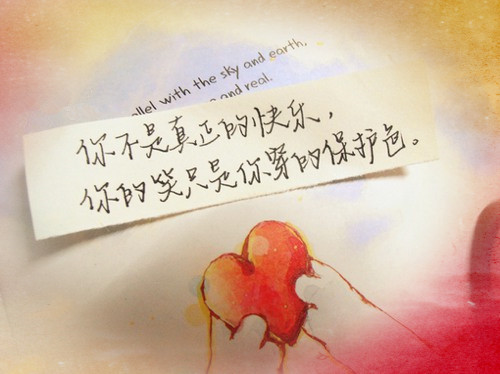 allel with the sky and earth,
and real.
你不是真正的快乐，
你的笑只是你穿的保护色。